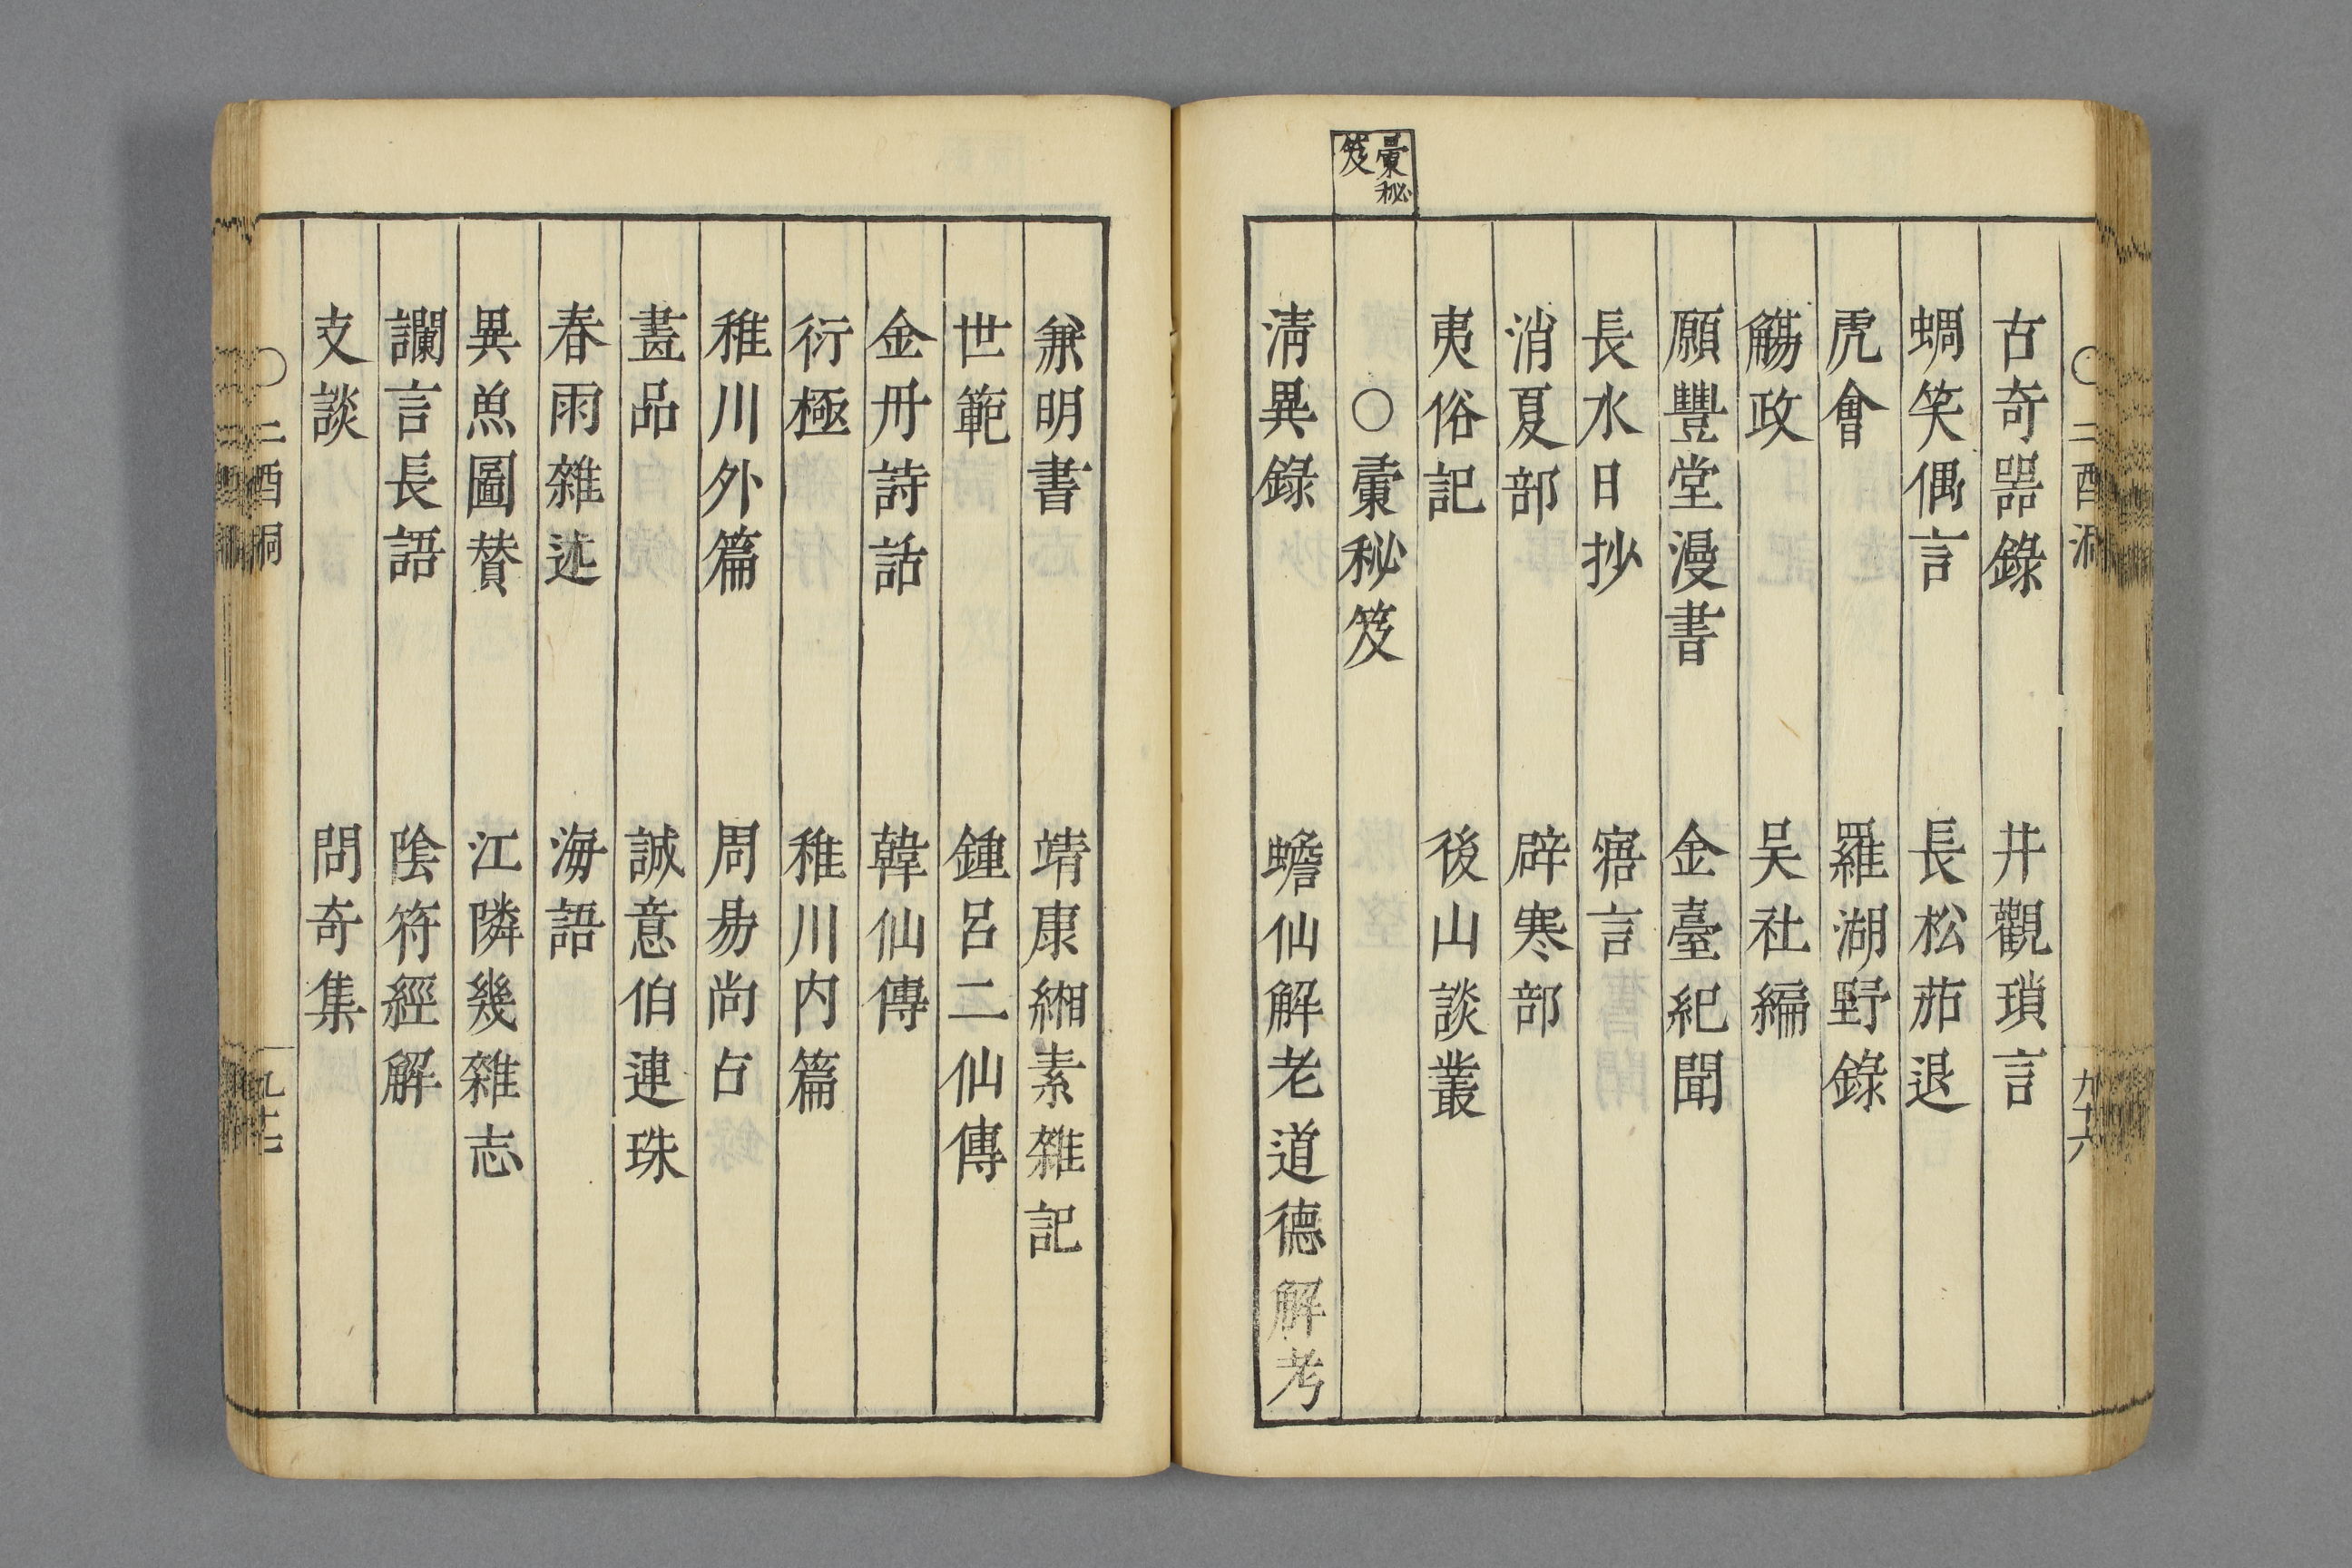 〇二酉洞
九十六
古奇器錄　井觀瑣言
蜩笑偶言　長松茹退
虎會　羅湖野錄
觴政　吳社編
願豐堂漫書　金臺紀聞
長水日抄　寤言
消夏部　辟寒部
夷俗記　後山談叢
彙秘笈
〇彙秘笈
淸異錄　蟾仙解老道德解考
兼明書　靖康緗素雜記
世範　鍾呂二仙傳
金丹詩話　韓仙傳
衍極　稚川內篇
稚川外篇　周易尚占
畫品　誠意伯連珠
春雨雜述　海語
異魚圖贊　江隣幾雜志
讕言長語　陰符經解
支談　問奇集
〇二酉洞
九十七